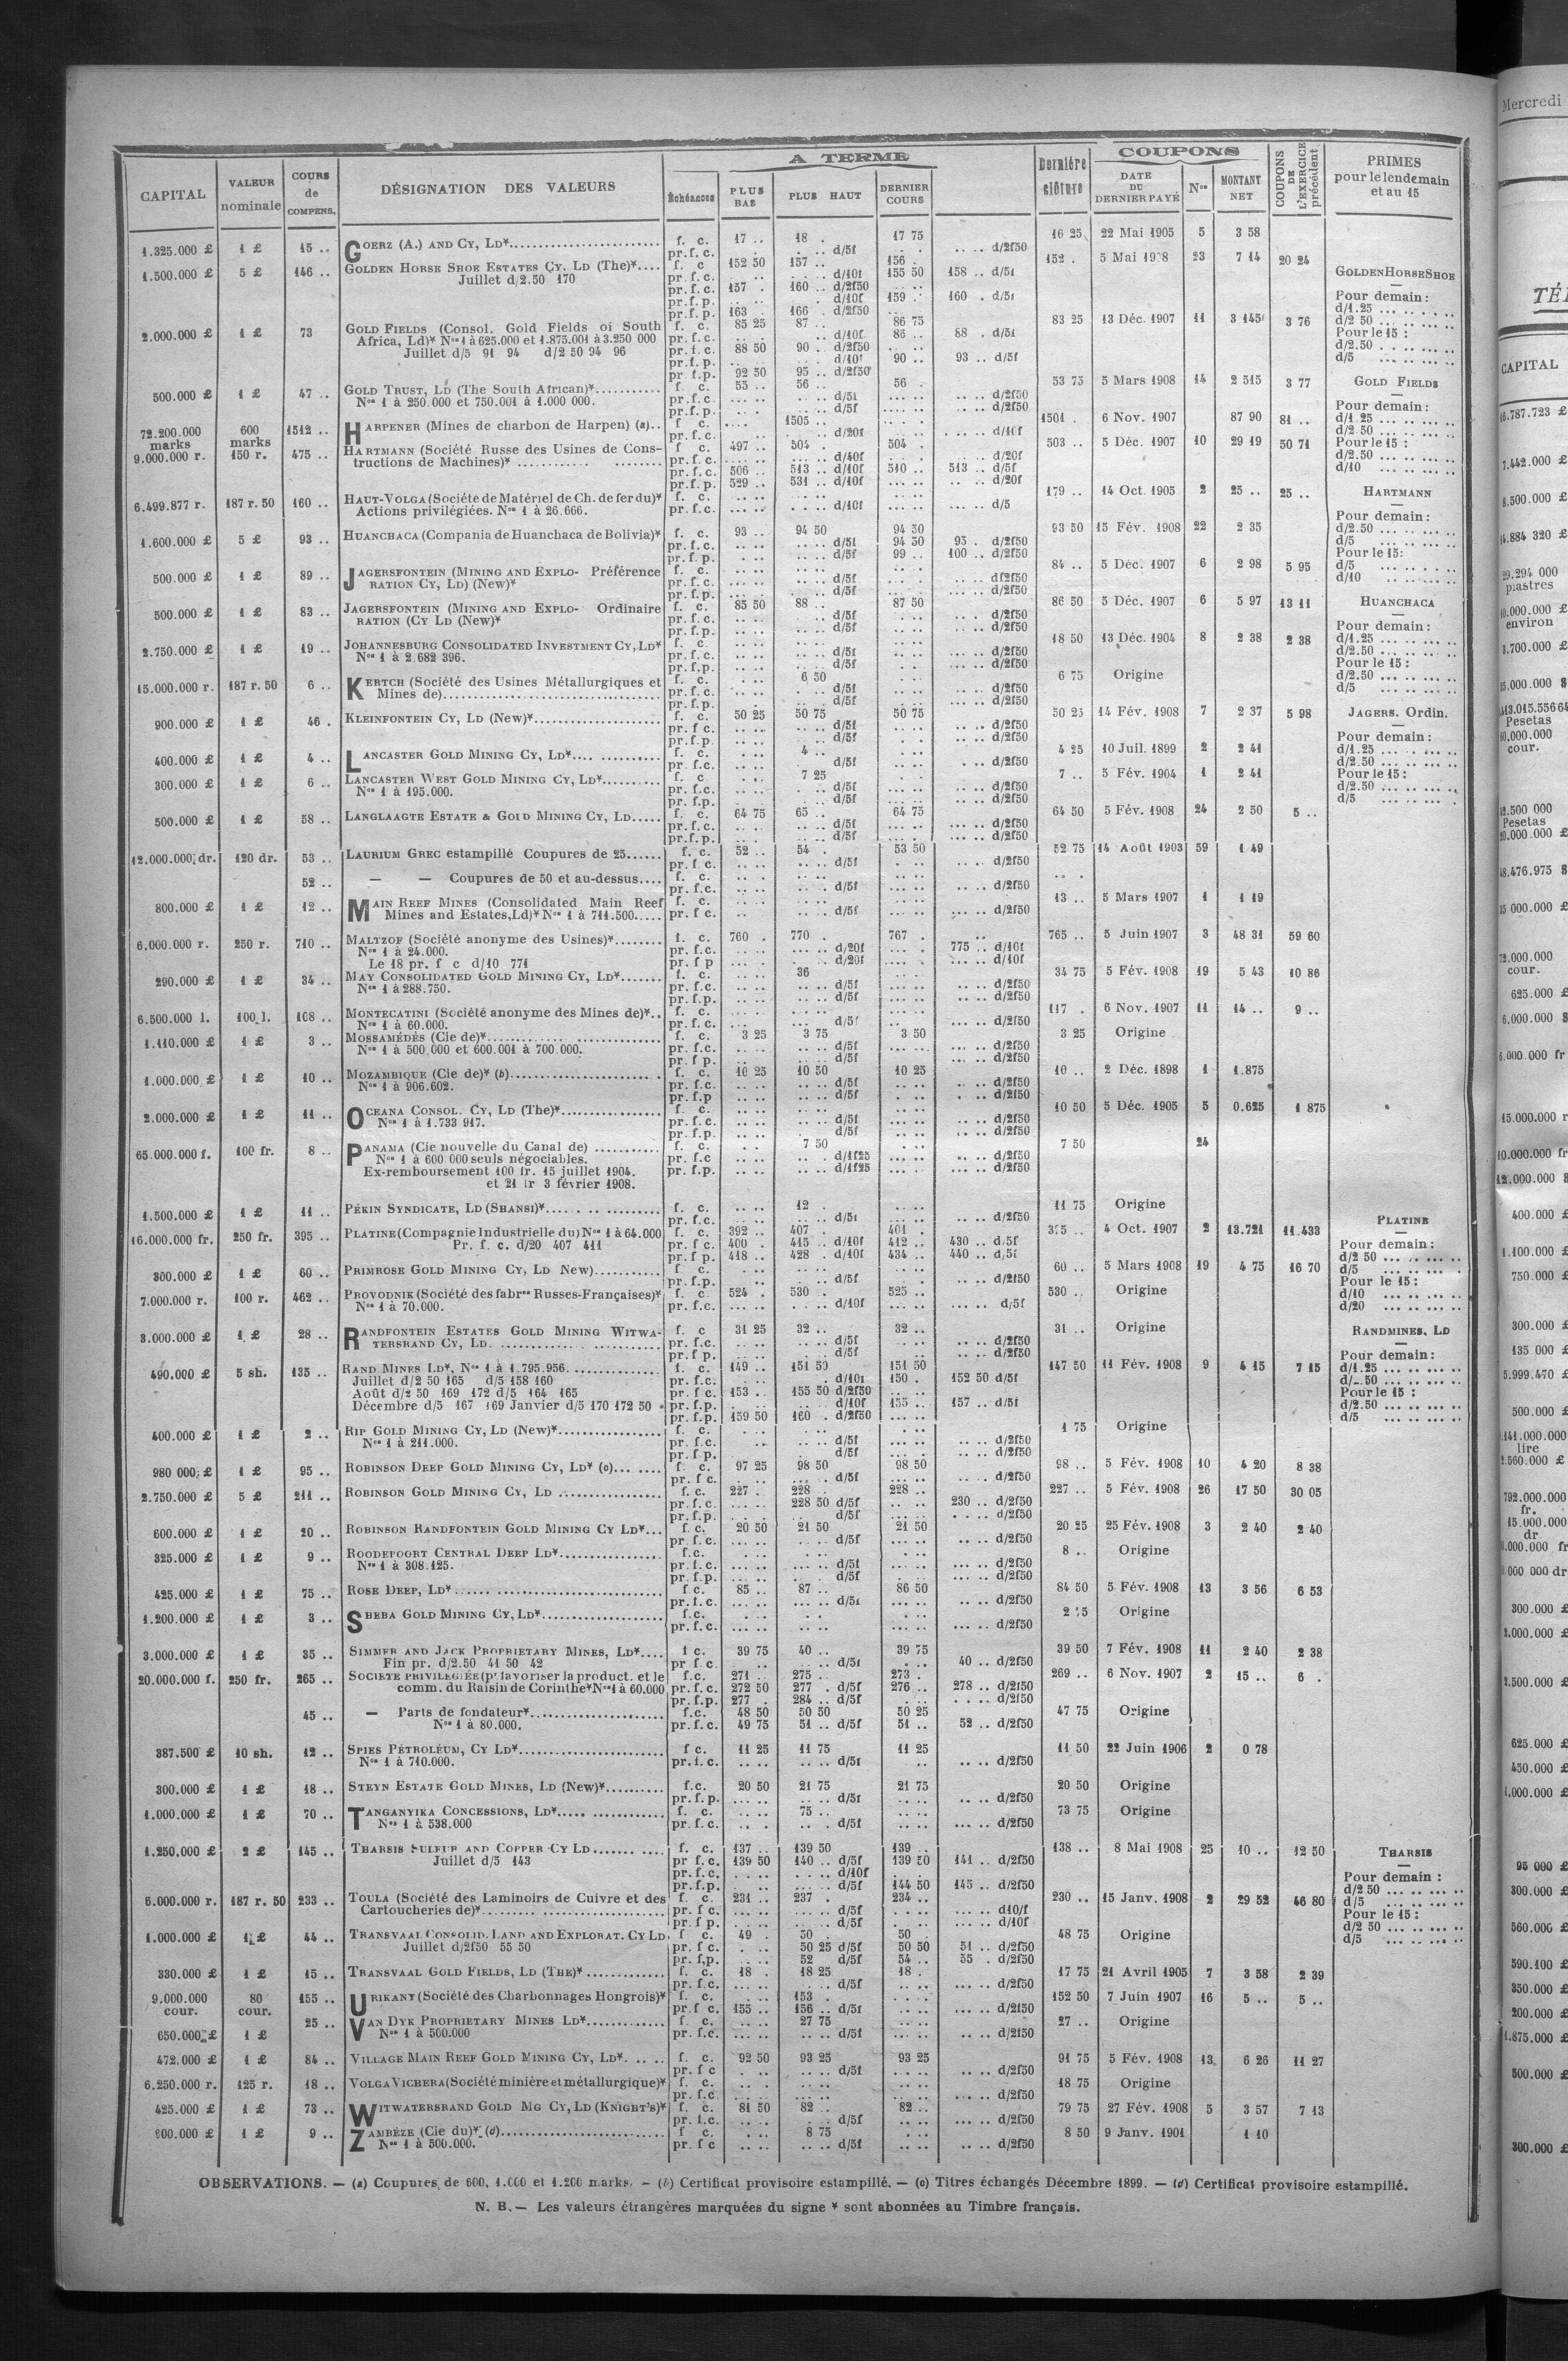 A TERME
COUPONS
CAPITAL
VALEUR nominale
COURS de COMPENS.
DÉSIGNATION DES VALEURS
Échéances
PLUS BAS
PLUS HAUT
DERNIER COURS
Dernière clôture
DATE DU DERNIER PAYÉ
Nos
MONTANT NET
COUPONS DE L'EXERCICE précédent
PRIMES pour le lendemain et au 15
1.325.000 £ 1 £ 15 .. GOERZ (A.) AND CY, LD* f. c. 17 .. 18 . 17 75 16 25 22 Mai 1905 5 3 58
pr. f. c. d/5f d/2f50
1.500.000 £ 5 £ 146 .. GOLDEN HORSE SHOE ESTATES CY. LD (The)* f. c 152 50 157 .. 156 . 152 . 23 7 14 20 24
Juillet d/2.50 170 pr. f. c. d/10f 155 50 158 .. d/5f
pr. f. c. 157 . 160 .. d/2f50
pr. f. p. d/10f 159 . 160 . d/5f
pr. f. p. 163 . 166 . d/2f50
2.000.000 £ 1 £ 73 GOLD FIELDS (Consol. Gold Fields of South f. c. 85 25 87 .. 86 75 83 25 13 Déc. 1907 11 3 145 3 76
Africa, Ld)* Nos 1 à 625.000 et 1.875.001 à 3.250 000 pr. f. c. d/10f 86 .. 88 . d/5f
Juillet d/5 91 94 d/2 50 94 96 pr. f. c. 88 50 90 . d/2f50
pr. f. p. d/10f 90 .. 93 .. d/5f
pr. f.p. 92 50 95 .. d/2f50
500.000 £ 1 £ 47 .. GOLD TRUST, LD (The South African)* f. c. 55 .. 56 .. 56 . 53 75 5 Mars 1908 14 2 515 3 77
Nos 1 à 250.000 et 750.001 à 1.000 000. pr. f. c. d/5f d/2f50
pr. f. p. d/5f d/2f50
72.200.000 marks 600 marks 1512 .. HARPENER (Mines de charbon de Harpen) (a) f c. 1505 .. 1501 . 6 Nov. 1907 87 90 81 ..
pr. f. c. d/20f d/10f
9.000.000 r. 150 r. 475 .. HARTMANN (Société Russe des Usines de Cons- f c. 497 .. 504 . 504 . 503 .. 5 Déc. 1907 10 29 19 50 71
tructions de Machines)* pr. f. c. d/40f d/20f
pr. f. c. 506 .. 513 .. d/10f 510 .. 513 .. d/5f
pr. f. p. 529 .. 531 .. d/10f d/20f
6.499.877 r. 187 r. 50 160 .. HAUT-VOLGA (Sociéte de Matériel de Ch. de fer du)* f. c. 179 .. 14 Oct. 1905 2 25 .. 25 ..
Actions privilégiées. Nos 1 à 26.666. pr. f.c. d/10f d/5
1.600.000 £ 5 £ 93 .. HUANCHACA (Compania de Huanchaca de Bolivia)* f. c. 93 .. 94 50 94 50 93 50 15 Fév. 1908 22 2 35
pr. f. c. d/5f 94 50 95 . d/2f50
pr. f. p. d/5f 99 .. 100 .. d/2f50
500.000 £ 1 £ 89 .. JAGERSFONTEIN (MINING AND EXPLO- Préférence f. c. 84 .. 5 Déc. 1907 6 2 98 5 95
RATION CY, LD) (New)* pr. f. c. d/5f d/2f50
pr. f. p. d/5f d/2f50
500.000 £ 1 £ 83 .. JAGERSFONTEIN (MINING AND EXPLO- Ordinaire f. c. 85 50 88 .. 87 50 86 50 5 Déc. 1907 6 5 97 13 11
RATION (CY LD (New)* pr. f. c. d/5f d/2f50
pr. f. p. d/5f d/2f50
2.750.000 £ 1 £ 19 .. JOHANNESBURG CONSOLIDATED INVESTMENT CY, LD* f. c 18 50 13 Déc. 1904 8 2 38 2 38
Nos 1 à 2.682 396. pr. f.c. d/5f d/2f50
pr. f.p. d/5f d/2f50
15.000.000 r. 187 r. 50 6 .. KERTCH (Société des Usines Métallurgiques et f. c. 6 50 6 75 Origine
Mines de) pr. f. c. d/5f d/2f50
pr. f.p. d/5f d/2f50
900.000 £ 1 £ 46 . KLEINFONTEIN CY, LD (New)* f. c. 50 25 50 75 50 75 50 25 14 Fév. 1908 7 2 37 5 98
pr. f c. d/5f d/2f50
pr. f.p. d/5f d/2f50
400.000 £ 1 £ 4 .. LANCASTER GOLD MINING CY, LD* f. c. 4 .. 4 25 10 Juil. 1899 2 2 41
pr. f.c. d/5f d/2f50
300.000 £ 1 £ 6 .. LANCASTER WEST GOLD MINING CY, LD* f. c 7 25 7 .. 5 Fév. 1904 1 2 41
Nos 1 à 195.000. pr. f.c. d/5f d/2f50
pr. f.p. d/5f d/2f50
500.000 £ 1 £ 58 .. LANGLAAGTE ESTATE & GOLD MINING CY, LD f. c. 64 75 65 .. 64 75 64 50 5 Fév. 1908 24 2 50 5 ..
pr. f. c. d/5f d/2f50
pr. f. p. d/5f d/2f50
12.000.000 dr. 120 dr. 53 .. LAURIUM GREC estampillé Coupures de 25 f. c. 52 .. 54 . 53 50 52 75 14 Août 1903 59 1 49
pr. f c. d/5f d/2f50
52 .. — — Coupures de 50 et au-dessus f. c.
pr. f.c. d/5f d/2f50
800.000 £ 1 £ 12 .. MAIN REEF MINES (Consolidated Main Reef f. c. 13 .. 5 Mars 1907 1 1 19
Mines and Estates, Ld)* Nos 1 à 711.500 pr. f c. d/5f d/2f50
6.000.000 r. 250 r. 710 .. MALTZOF (Société anonyme des Usines)* f. c. 760 . 770 . 767 . 765 .. 5 Juin 1907 3 48 31 59 60
Nos 1 à 24.000. pr. f.c. d/20f 775 .. d/10f
Le 18 pr. f c d/10 771 pr. f p d/20f d/10f
290.000 £ 1 £ 34 .. MAY CONSOLIDATED GOLD MINING CY, LD* f. c. 36 34 75 5 Fév. 1908 19 5 43 10 86
Nos 1 à 288.750. pr. f.c. d/5f d/2f50
pr. f.p. d/5f d/2f50
6.500.000 l. 100 l. 108 .. MONTECATINI (Société anonyme des Mines de)* f. c. 117 . 6 Nov. 1907 11 14 .. 9 ..
Nos 1 à 60.000. pr. f. c. d/5f d/2f50
1.110.000 £ 1 £ 3 .. MOSSAMÉDÈS (Cie de)* f. c. 3 25 3 75 3 50 3 25 Origine
Nos 1 à 500 000 et 600.001 à 700.000. pr. f.c. d/5f d/2f50
pr. f p. d/5f d/2f50
1.000.000 £ 1 £ 10 .. MOZAMBIQUE (Cie de)* (b) f. c. 10 25 10 50 10 25 10 .. 2 Déc. 1898 1 1.875
Nos 1 à 906.602. pr. f.c. d/5f d/2f50
pr. f.p d/5f d/2f50
2.000.000 £ 1 £ 11 .. OCEANA CONSOL. CY, LD (The)* f. c. 10 50 5 Déc. 1905 5 0.625 1 875
Nos 1 à 1.733 917. pr. f.c. d/5f d/2f50
pr. f.p. d/5f d/2f50
65.000.000 f. 100 fr. 8 .. PANAMA (Cie nouvelle du Canal de) f. c. 7 50 7 50 24
Nos 1 à 600 000 seuls négociables. pr. f.c d/1f25 d/2f50
Ex-remboursement 100 fr. 15 juillet 1904. pr. f.p. d/1f25 d/2f50
et 21 fr 3 février 1908.
1.500.000 £ 1 £ 11 .. PÉKIN SYNDICATE, LD (SHANSI)* f. c. 12 . 11 75 Origine
pr. f.c. d/5f d/2f50
16.000.000 fr. 250 fr. 395 .. PLATINE (Compagnie Industrielle du) Nos 1 à 64.000 f. c. 392 .. 407 . 401 . 4 Oct. 1907 2 13.721 11.433
Pr. f. c. d/20 407 411 pr. f c 400 . 415 .. d/10f 412 .. 430 .. d/5f
pr. f p. 418 .. 428 . d/10f 434 .. 440 .. d/5f
300.000 £ 1 £ 60 .. PRIMROSE GOLD MINING CY, LD New) f. c. 60 .. 5 Mars 1908 19 4 75 16 70
pr. f.p. d/5f d/2f50
7.000.000 r. 100 r. 462 .. PROVODNIK (Société des fabres Russes-Françaises)* f. c 524 . 530 . 525 .. 530 .. Origine
Nos 1 à 70.000. pr. f.c. d/10f d/5f
3.000.000 £ 1 £ 28 .. RANDFONTEIN ESTATES GOLD MINING WITWA- f. c 31 25 32 .. 32 .. 31 .. Origine
TERSRAND CY, LD. pr. f.c. d/5f d/2f50
pr. f p. d/5f d/2f50
490.000 £ 5 sh. 135 .. RAND MINES LD*, Nos 1 à 1.795.956. f. c. 149 .. 151 50 151 50 147 50 11 Fév. 1908 9 4 15 7 15
Juillet d/2 50 165 d/5 158 160 pr. f.c. d/10f 150 . 152 50 d/5f
Août d/2 50 169 172 d/5 164 165 pr. f c. 153 .. 155 50 d/2f50
Décembre d/5 167 169 Janvier d/5 170 172 50 pr. f.p. d/10f 155 .. 157 .. d/5f
pr. f.p. 159 50 160 . d/2f50
400.000 £ 1 £ 2 .. RIP GOLD MINING CY, LD (New)* f. c. 1 75 Origine
Nos 1 à 211.000. pr. f.c. d/5f d/2f50
pr. f p. d/5f d/2f50
980 000 £ 1 £ 95 .. ROBINSON DEEP GOLD MINING CY, LD* (c) f. c. 97 25 98 50 98 50 98 .. 5 Fév. 1908 10 4 20 8 38
pr. f c. d/5f d/2f50
2.750.000 £ 5 £ 211 .. ROBINSON GOLD MINING CY, LD f. c. 227 . 228 . 228 .. 227 .. 5 Fév. 1908 26 17 50 30 05
pr. f.c. 228 50 d/5f 230 .. d/2f50
pr. f.p. d/5f d/2f50
600.000 £ 1 £ 20 .. ROBINSON RANDFONTEIN GOLD MINING CY LD* f. c. 20 50 21 50 21 50 20 25 25 Fév. 1908 3 2 40 2 40
pr. f. c. d/5f d/2f50
325.000 £ 1 £ 9 .. ROODEPOORT CENTRAL DEEP LD* f.c. 8 .. Origine
Nos 1 à 308.125. pr. f.c. d/5f d/2f50
pr. f.p. d/5f d/2f50
425.000 £ 1 £ 75 .. ROSE DEEP, LD* f.c. 85 .. 87 .. 86 50 84 50 5 Fév. 1908 13 3 56 6 53
pr. f.c. d/5f d/2f50
1.200.000 £ 1 £ 3 .. SHEBA GOLD MINING CY, LD* f.c. Origine
pr. f. c. d/2f50
3.000.000 £ 1 £ 35 .. SIMMER AND JACK PROPRIETARY MINES, LD* f c. 39 75 40 .. 39 75 39 50 7 Fév. 1908 11 2 40 2 38
Fin pr. d/2.50 41 50 42 pr f c. d/5f 40 .. d/2f50
20.000.000 f. 250 fr. 265 .. SOCIÉTÉ PRIVILÉGIÉE (pr favoriser la product. et le f.c. 271 .. 275 .. 273 . 269 .. 6 Nov. 1907 2 15 .. 6 .
comm. du Raisin de Corinthe* Nos 1 à 60.000 pr. f.c. 272 50 277 . d/5f 276 .. 278 .. d/2f50
pr. f.p. 277 . 284 .. d/5f d/2f50
45 .. — Parts de fondateur* f.c. 48 50 50 50 50 25 47 75 Origine
Nos 1 à 80.000. pr. f.c. 49 75 51 .. d/5f 51 .. 52 .. d/2f50
387.500 £ 10 sh. 12 .. SPIES PÉTROLÉUM, CY LD* f c. 11 25 11 75 11 25 11 50 22 Juin 1906 2 0 78
Nos 1 à 710.000. pr. f. c. d/5f d/2f50
300.000 £ 1 £ 18 .. STEYN ESTATE GOLD MINES, LD (New)* f.c. 20 50 21 75 21 75 20 50 Origine
pr. f. p. d/5f d/2f50
1.000.000 £ 1 £ 70 .. TANGANYIKA CONCESSIONS, LD* f. c. 75 .. 73 75 Origine
Nos 1 à 538.000 pr. f.c. d/5f d/2f50
1.250.000 £ 2 £ 145 .. THARSIS SULFUR AND COPPER CY LD f. c. 137 .. 139 50 139 .. 138 .. 8 Mai 1908 25 10 .. 12 50
Juillet d/5 143 pr f. c. 139 50 140 .. d/5f 139 50 141 .. d/2f50
pr. f. c. d/10f
pr. f.p. d/5f 144 50 145 .. d/2f50
6.000.000 r. 187 r. 50 233 .. TOULA (Société des Laminoirs de Cuivre et des f. c. 231 .. 237 . 234 .. 230 .. 15 Janv. 1908 2 29 52 46 80
Cartoucheries de)* pr. f c. d/5f d10/f
pr f p. d/5f d/10f
1.000.000 £ 1 £ 44 .. TRANSVAAL CONSOLID. LAND AND EXPLORAT. CY LD. f c. 49 . 50 . 50 . 48 75 Origine
Juillet d/2f50 55 50 pr. f c. 50 25 d/5f 50 50 51 .. d/2f50
pr. f.p. 52 d/5f 54 .. 55 . d/2f50
330.000 £ 1 £ 15 .. TRANSVAAL GOLD FIELDS, LD (THE)* f. c. 18 . 18 25 18 . 17 75 21 Avril 1905 7 3 58 2 39
pr. f.c. d/5f d/2f50
9.000.000 cour. 80 cour. 155 .. URIKANY (Société des Charbonnages Hongrois)* f. c. 153 . 152 50 7 Juin 1907 16 5 .. 5 ..
pr. f c. 155 .. 156 .. d/5f d/2f50
650.000 £ 1 £ 25 .. VAN DYK PROPRIETARY MINES LD* f. c. 27 75 27 .. Origine
Nos 1 à 500.000 pr. f.c. d/5f d/2f50
472.000 £ 1 £ 84 .. VILLAGE MAIN REEF GOLD MINING CY, LD* f. c. 92 50 93 25 93 25 91 75 5 Fév. 1908 13 6 26 11 27
pr. f c d/5f d/2f50
6.250.000 r. 125 r. 18 .. VOLGA VICHERA (Société minière et métallurgique)* f. c. 18 75 Origine
pr. f.c d/2f50
425.000 £ 1 £ 73 .. WITWATERSRAND GOLD MG CY, LD (KNIGHT'S)* f. c. 81 50 82 .. 82 .. 79 75 27 Fév. 1908 5 3 57 7 13
pr. f.c. d/5f d/2f50
1 £ 9 .. ZAMBÈZE (Cie du)* (d) f c. 8 75 8 50 9 Janv. 1901 1 10
Nos 1 à 500.000. pr. f c d/5f d/2f50
GOLDEN HORSE SHOE
Pour demain :
d/1.25
d/2 50
Pour le 15 :
d/2.50
d/5
GOLD FIELDS
Pour demain :
d/1.25
d/2.50
Pour le 15 :
d/2.50
d/10
HARTMANN
Pour demain :
d/2.50
d/5
Pour le 15 :
d/5
d/10
HUANCHACA
Pour demain :
d/1.25
d/2.50
Pour le 15 :
d/2.50
d/5
JAGERS. Ordin.
Pour demain :
d/1.25
d/2.50
Pour le 15 :
d/2.50
d/5
PLATINE
Pour demain :
d/2 50
d/5
Pour le 15 :
d/10
d/20
RANDMINES, LD
Pour demain :
d/1.25
Pour le 15 :
d/2.50
d/5
THARSIS
Pour demain :
d/2 50
d/5
Pour le 15 :
d/2 50
d/5
OBSERVATIONS. — (a) Coupures de 600, 1.000 et 1.200 marks. — (b) Certificat provisoire estampillé. — (c) Titres échangés Décembre 1899. — (d) Certificat provisoire estampillé.
N. B. — Les valeurs étrangères marquées du signe * sont abonnées au Timbre français.
Mercredi
CAPITAL
7.442.000 £
piastres
environ
Pesetas
cour.
Pesetas
cour.
625.000 £
6.000.000
15.000.000 r
400.000 £
1.100.000 £
750.000 £
300.000 £
135 000 £
5.999.470 £
500.000 £
lire
792.000.000
fr.
15.000.000
dr
300.000 £
625.000 £
450.000 £
95 000 £
300.000 £
560.000 £
590.100 £
350.000 £
200.000 £
500.000 £
300.000 £